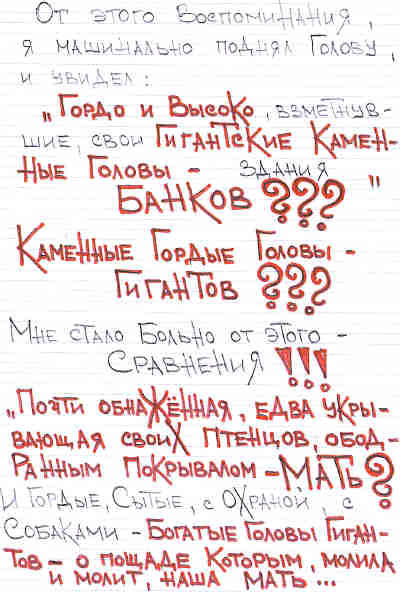 От этого Воспоминания,
я машинально поднял Голову,
и увидел:
„Гордо и Высоко, взметнув-
шие, свои Гигантские Камен-
ные Головы - здания
Банков ???"
Каменные Гордые Головы -
Гигантов ???
Мне стало Больно от этого -
Сравнения !!!
„Почти обнажённая, едва укры-
вающая своих птенцов, обод-
ранным покрывалом - Мать?
И Гордые, Сытые, с Охраной, с
Собаками - Богатые Головы Гиган-
тов - о пощаде Которым, молила
и молит, наша Мать...